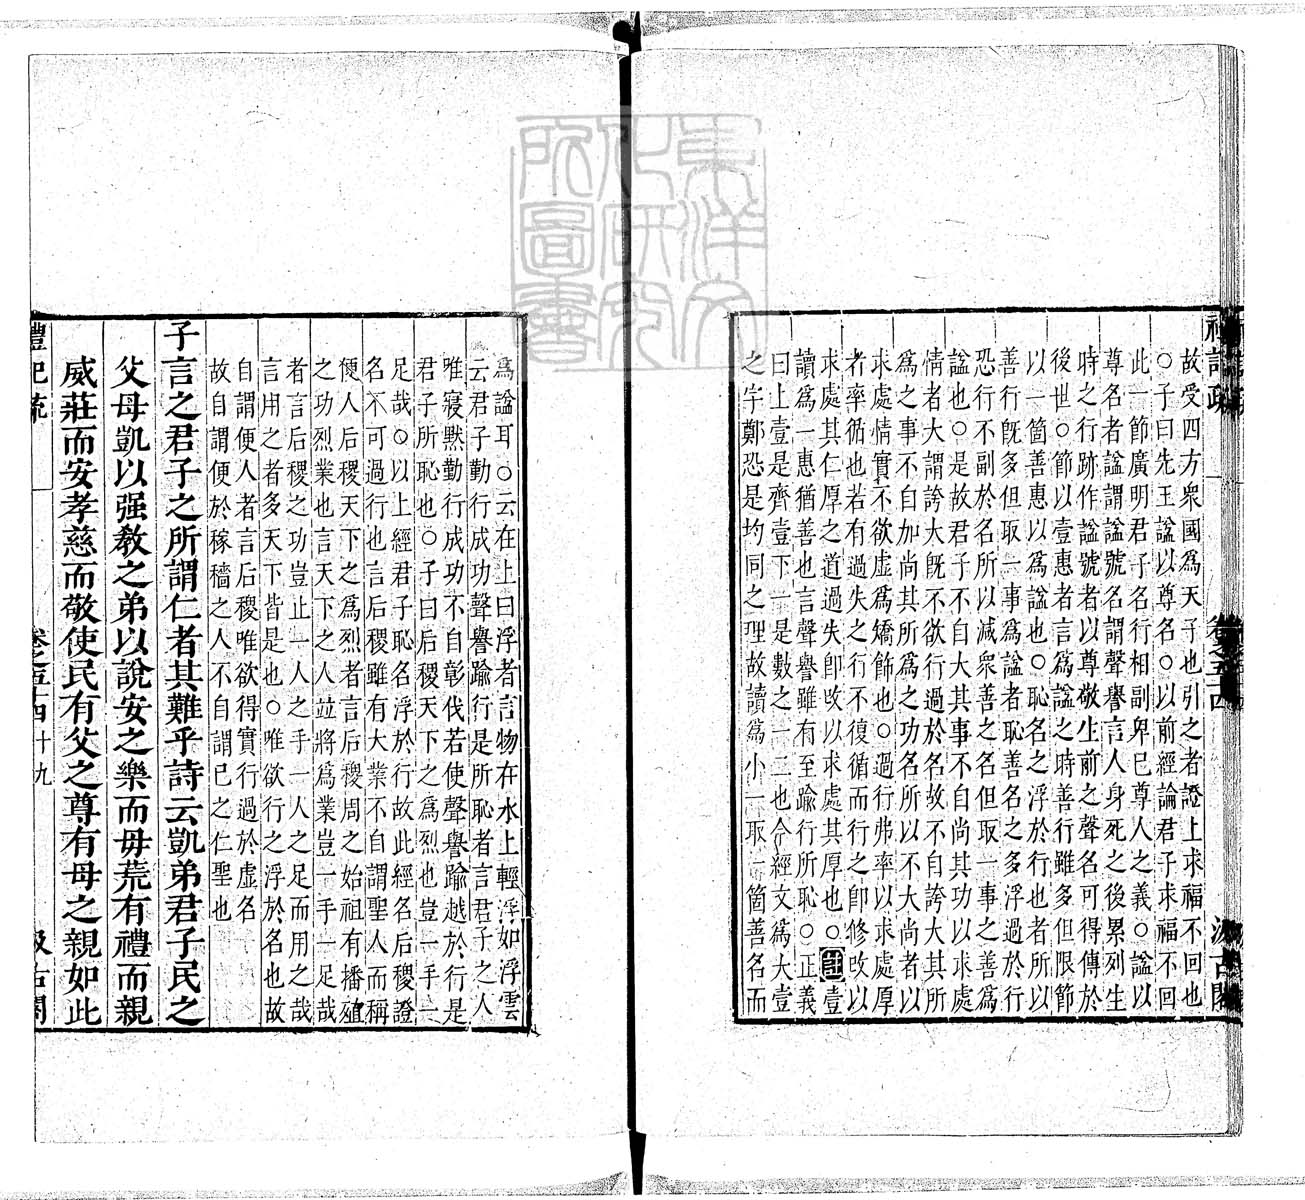 故受四方衆國爲天子也引之者證上求福不回也
○子曰先王諡以尊名○以前經論君子求福不回
此一節廣明君子名行相副卑已尊人之義○諡以
尊名者諡謂諡號名謂聲譽言人身死之後累列生
時之行跡作諡號者以尊敬生前之聲名可得傳於
後世○節以壹惠者言爲諡之時善行雖多但限節
以一箇善惠以爲諡也○恥名之浮於行也者所以
善行旣多但取一事爲諡者恥善名之多浮過於行
恐行不副於名所以減衆善之名但取一事之善爲
諡也○是故君子不自大其事不自尚其功以求處
情者大謂誇大旣不欲行過於名故不自誇大其所
爲之事不自加尚其所爲之功名所以不大尚者以
求處情實不欲虛爲矯飾也○過行弗率以求處厚
者率循也若有過失之行不復循而行之卽修改以
求處其仁厚之道過失卽改以求處其厚也○註壹
讀爲一惠猶善也言聲譽雖有至踰行所恥○正義
曰上壹是齊壹下一是數之一二也今經文爲大壹
之字鄭恐是均同之理故讀爲小一取一箇善名而
爲諡耳○云在上曰浮者言物在水上輕浮如浮雲
云君子勤行成功聲譽踰行是所恥者言君子之人
唯寢默勤行成功不自彰伐若使聲譽踰越於行是
君子所恥也○子曰后稷天下之爲烈也豈一手一
足哉○以上經君子恥名浮於行故此經名后稷證
名不可過行也言后稷雖有大業不自謂聖人而稱
便人后稷天下之爲烈者言后稷周之始祖有播殖
之功烈業也言天下之人並將爲業豈一手一足哉
者言后稷之功豈止一人之手一人之足而用之哉
言用之者多天下皆是也○唯欲行之浮於名也故
自謂便人者言后稷唯欲得實行過於虛名
故自謂便於稼穡之人不自謂已之仁聖也
子言之君子之所謂仁者其難乎詩云凱弟君子民之
父母凱以强敎之弟以說安之樂而毋荒有禮而親
威莊而安孝慈而敬使民有父之尊有母之親如此
禮記疏 卷之五十四 十九 汲古閣